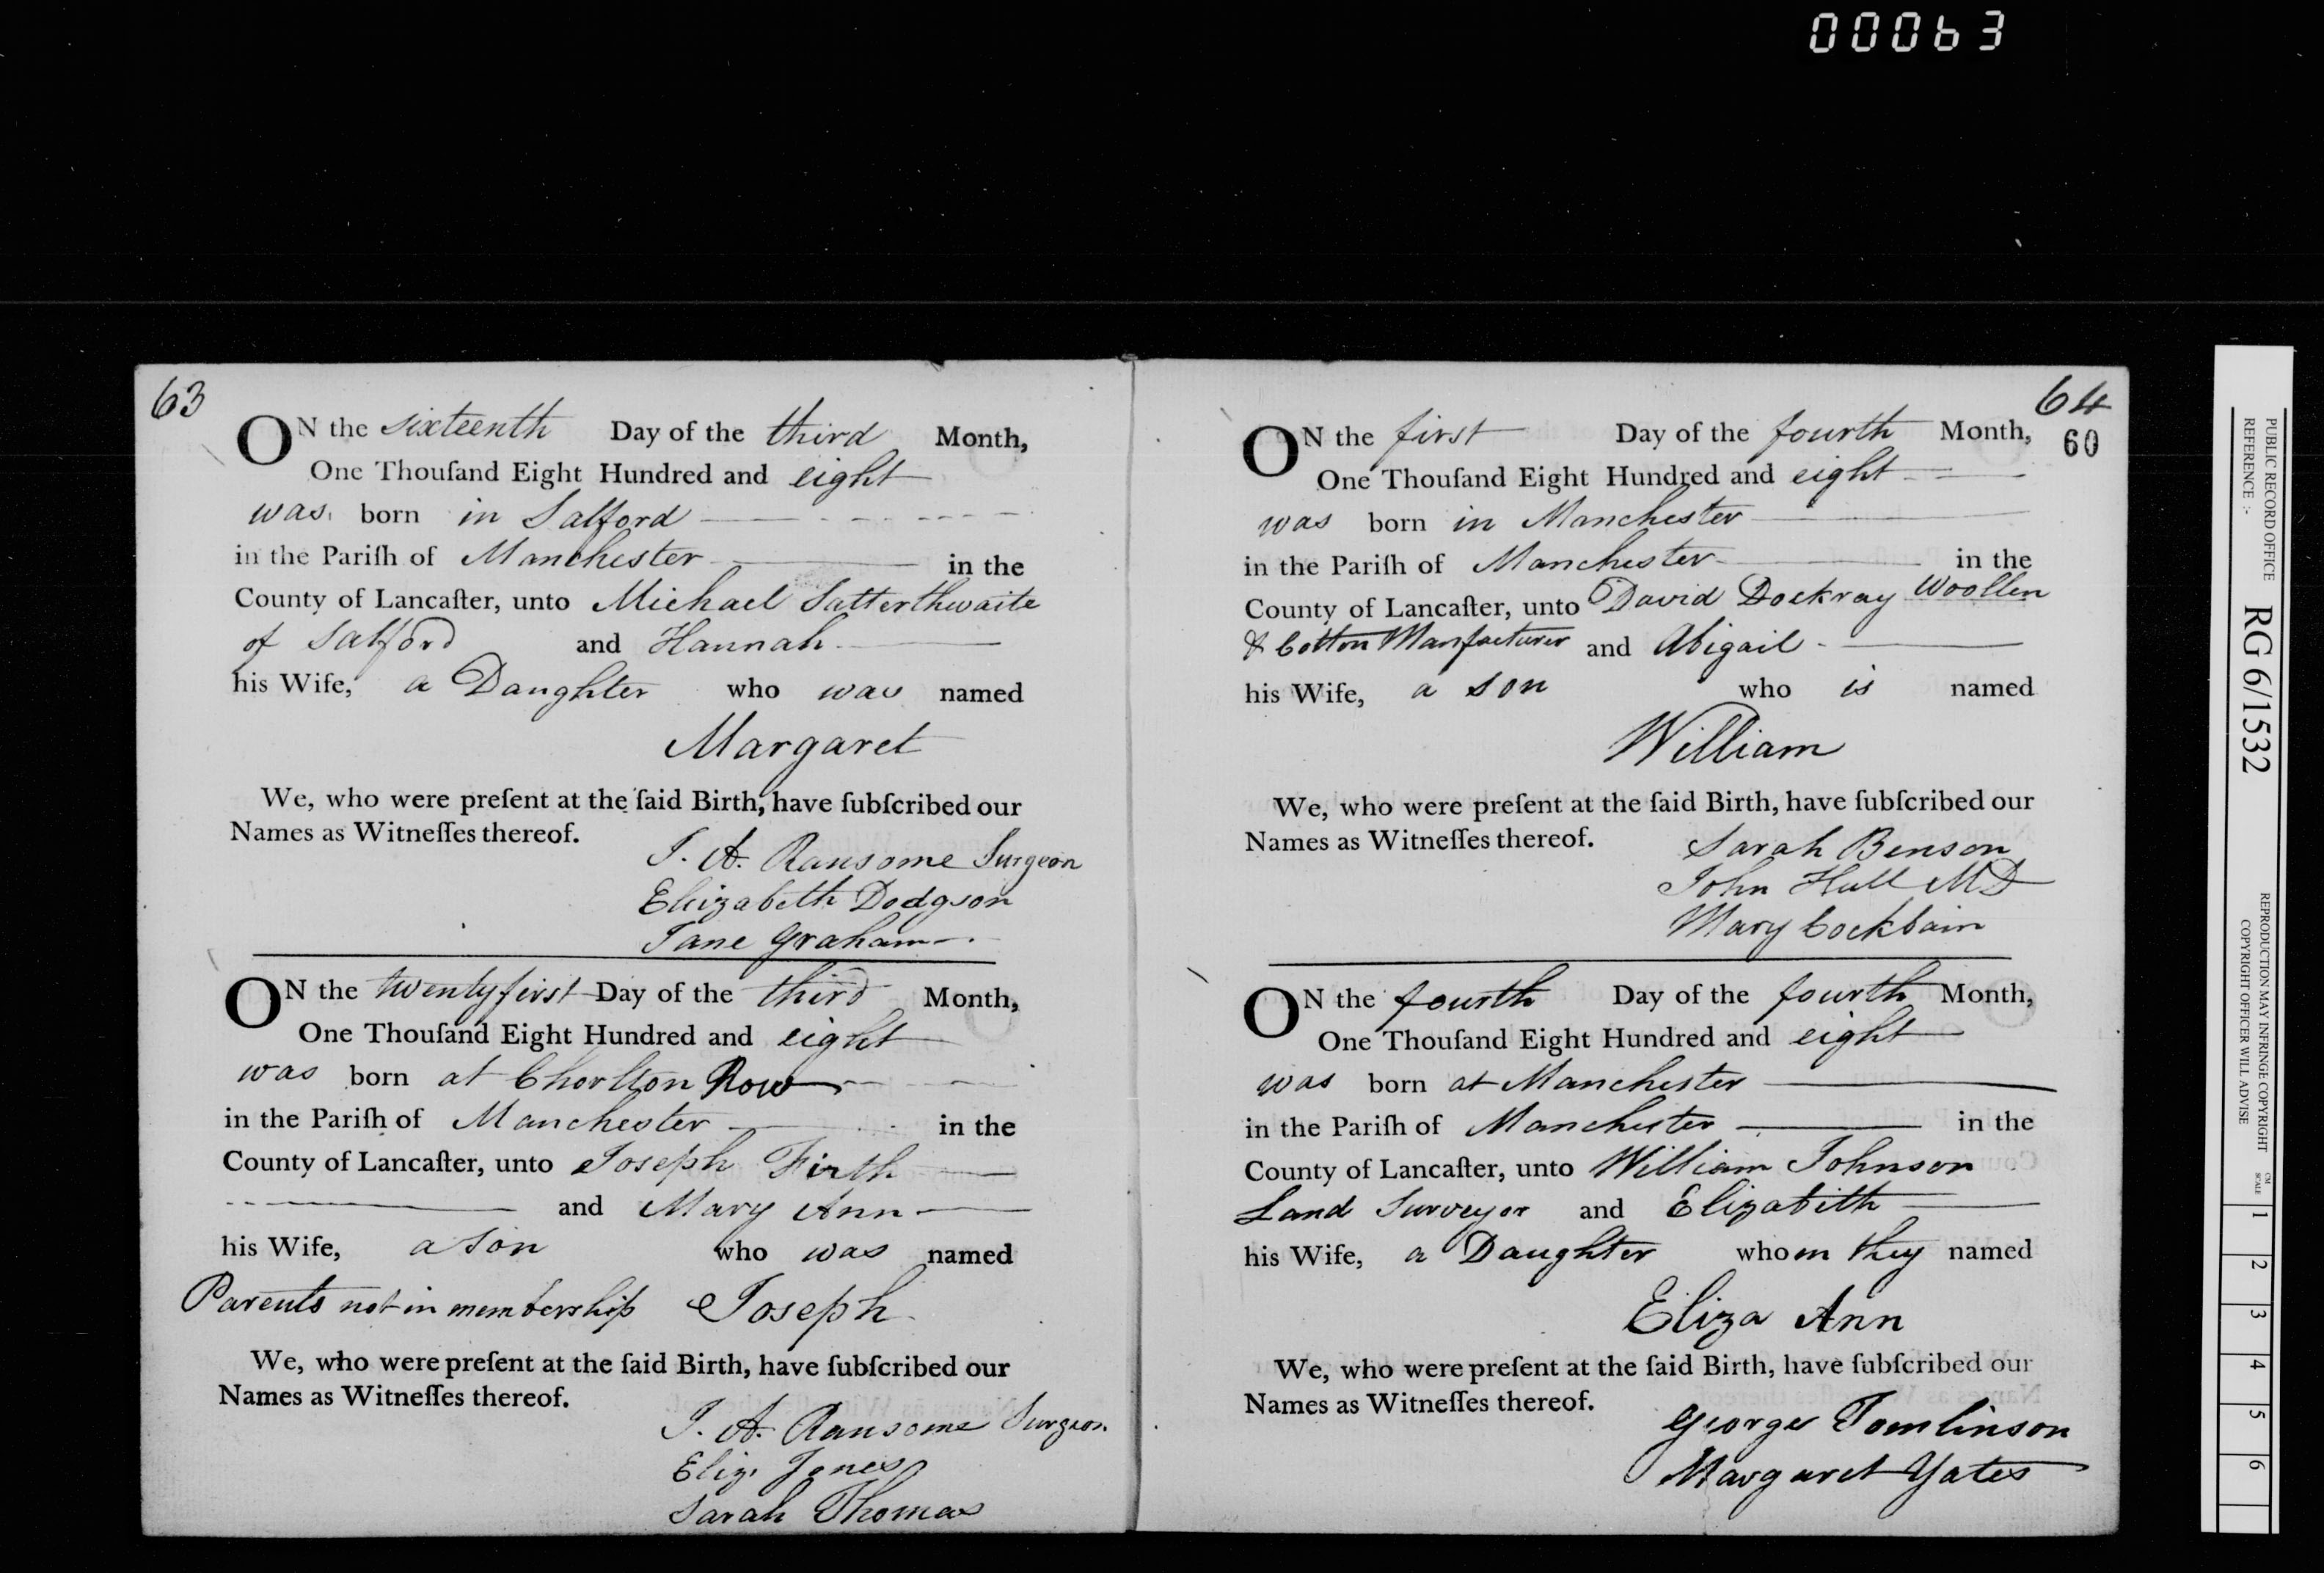 00063
63
ON the sixteenth Day of the third Month,
One Thouſand Eight Hundred and eight
was born in Salford
in the Pariſh of Manchester in the
County of Lancaſter, unto Michael Satterthwaite
of Salford and Hannah
his Wife, a Daughter who was named
Margaret
We, who were preſent at the ſaid Birth, have ſubſcribed our
Names as Witneſſes thereof.
J. A. Ransome Surgeon
Elizabeth Dodgson
Jane Graham
ON the twenty first Day of the third Month,
One Thouſand Eight Hundred and eight
was born at Chorlton Row
in the Pariſh of Manchester in the
County of Lancaſter, unto Joseph Firth
and Mary Ann
his Wife, a son who was named
Parents not in membership Joseph
We, who were preſent at the ſaid Birth, have ſubſcribed our
Names as Witneſſes thereof.
J. A. Ransome Surgeon
Eliz. Jones
Sarah Thomas
64
60
ON the first Day of the fourth Month,
One Thouſand Eight Hundred and eight
was born in Manchester
in the Pariſh of Manchester in the
County of Lancaſter, unto David Dockray Woollen
& Cotton Manfacturer and Abigail
his Wife, a son who is named
William
We, who were preſent at the ſaid Birth, have ſubſcribed our
Names as Witneſſes thereof.
Sarah Benson
John Hull MD
Mary Cockbain
ON the fourth Day of the fourth Month,
One Thouſand Eight Hundred and eight
was born at Manchester
in the Pariſh of Manchester in the
County of Lancaſter, unto William Johnson
Land Surveyor and Elizabeth
his Wife, a Daughter whom they named
Eliza Ann
We, who were preſent at the ſaid Birth, have ſubſcribed our
Names as Witneſſes thereof.
George Tomlinson
Margaret Yates
PUBLIC RECORD OFFICE
REFERENCE :-
RG 6/1532
REPRODUCTION MAY INFRINGE COPYRIGHT
COPYRIGHT OFFICER WILL ADVISE
CM
SCALE
1 2 3 4 5 6